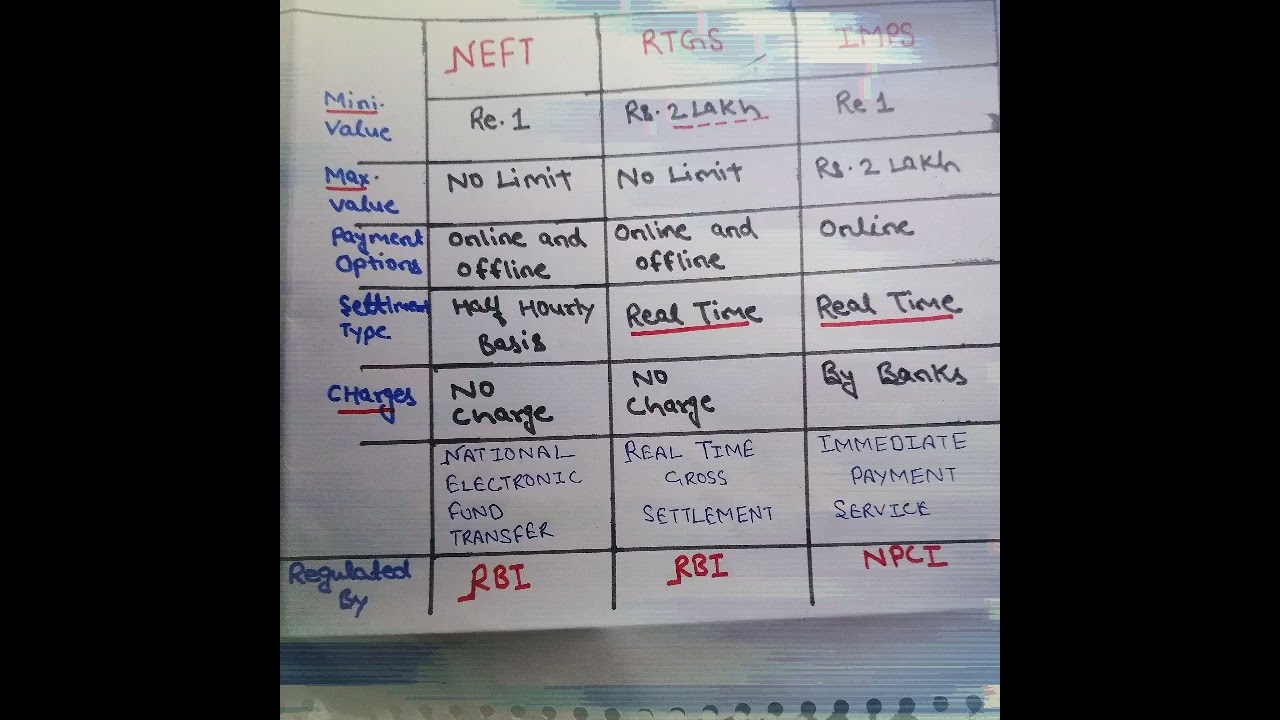 NEFT RTGS IMPS
Mini. Re.1 Rs. 2 LAKh Re 1
Value
Max. NO Limit NO Limit Rs. 2 LaKh
value
Payment Online and Online and Online
Options offline offline
Settlment Half Hourly Real Time Real Time
Type Basis
CHarges NO NO By Banks
Charge Charge
NATIONAL REAL TIME IMMEDIATE
ELECTRONIC GROSS PAYMENT
FUND SETTLEMENT SERVICE
TRANSFER
Regulated RBI RBI NPCI
By